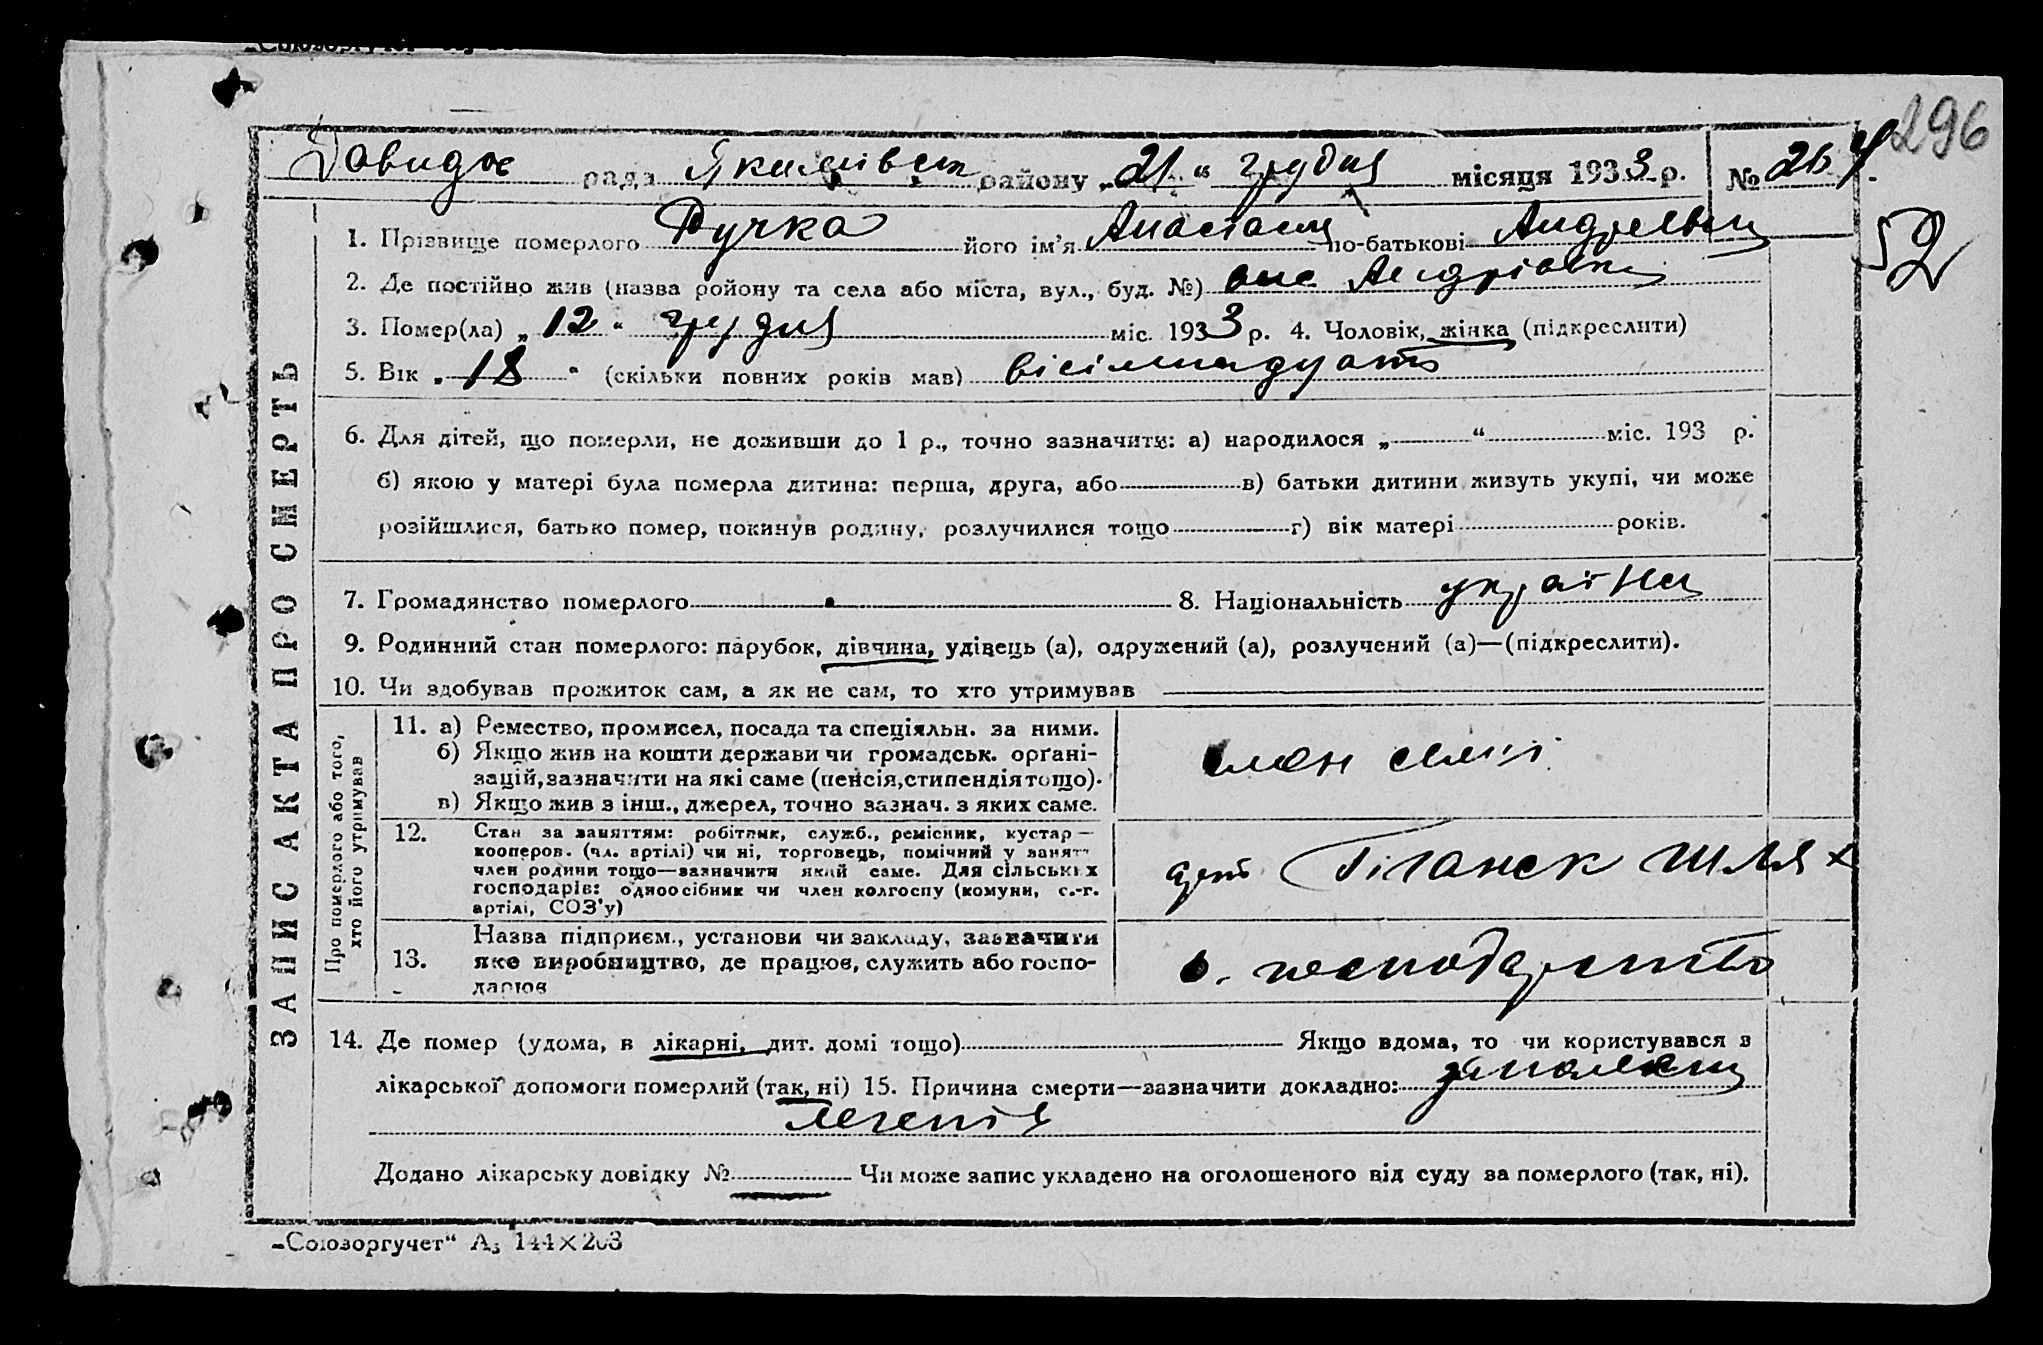 296
Давидов рада Якимівськ району „21“ грудня місяця 1933 р. № 264
52
ЗАПИС АКТА ПРО СМЕРТЬ
1. Прізвище померлого Ручка його ім’я Анастасия по-батькові Андреевна
2. Де постійно жив (назва ройону та села або міста, вул., буд. №) Андріовка
3. Помер(ла) „12“ грудня міс. 1933 р. 4. Чоловік, жінка (підкреслити)
5. Вік „18“ (скільки повних років мав) вісімнадцать
6. Для дітей, що померли, не доживши до 1 р., точно зазначити: а) народилося „ “ міс. 193 р.
б) якою у матері була померла дитина: перша, друга, або в) батьки дитини живуть укупі, чи може
розійшлися, батько помер, покинув родину, розлучилися тощо г) вік матері років.
7. Громадянство померлого 8. Національність україн
9. Родинний стан померлого: парубок, дівчина, удівець (а), одружений (а), розлучений (а)—(підкреслити).
10. Чи здобував прожиток сам, а як не сам, то хто утримував
Про померлого або того,
хто його утримував
11. а) Ремество, промисел, посада та спеціяльн. за ними.
б) Якщо жив на кошти держави чи громадськ. орґані-
зацій, зазначити на які саме (пенсія, стипендія тощо).
в) Якщо жив з інш., джерел, точно зазнач. з яких саме.
член семьі
12. Стан за заняттям: робітник, служб., ремісник, кустар —
кооперов. (чл. артілі) чи ні, торговець, помічний у занят
член родини тощо—зазначити який саме. Для сільських
господарів: одноосібник чи член колгоспу (комуни, с.-г.
артілі, СОЗ’у)
арт Гіганск шлях
13. Назва підприєм., установи чи закладу, зазначити
яке виробництво, де працюв, служить або госпо-
дарює
с. господарство
14. Де помер (удома, в лікарні, дит. домі тощо) Якщо вдома, то чи користувався з
лікарської допомоги померлий (так, ні) 15. Причина смерти—зазначити докладно: запаленя
легенів
Додано лікарську довідку № Чи може запис укладено на оголошеного від суду за померлого (так, ні).
„Союзоргучет“ А₅ 144×203